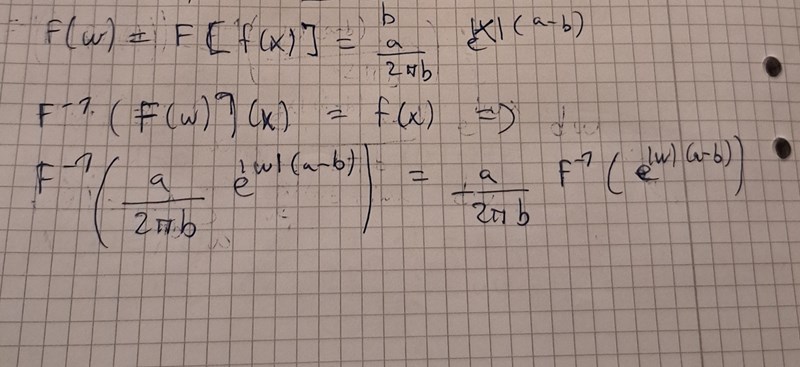 F(w) = F[f(x)] = b a/2πb e^|x|(a-b)
F⁻¹(F(w))(x) = f(x) =>
F⁻¹(a/2πb e^|w|(a-b)) = a/2πb F⁻¹(e^|w|(a-b))